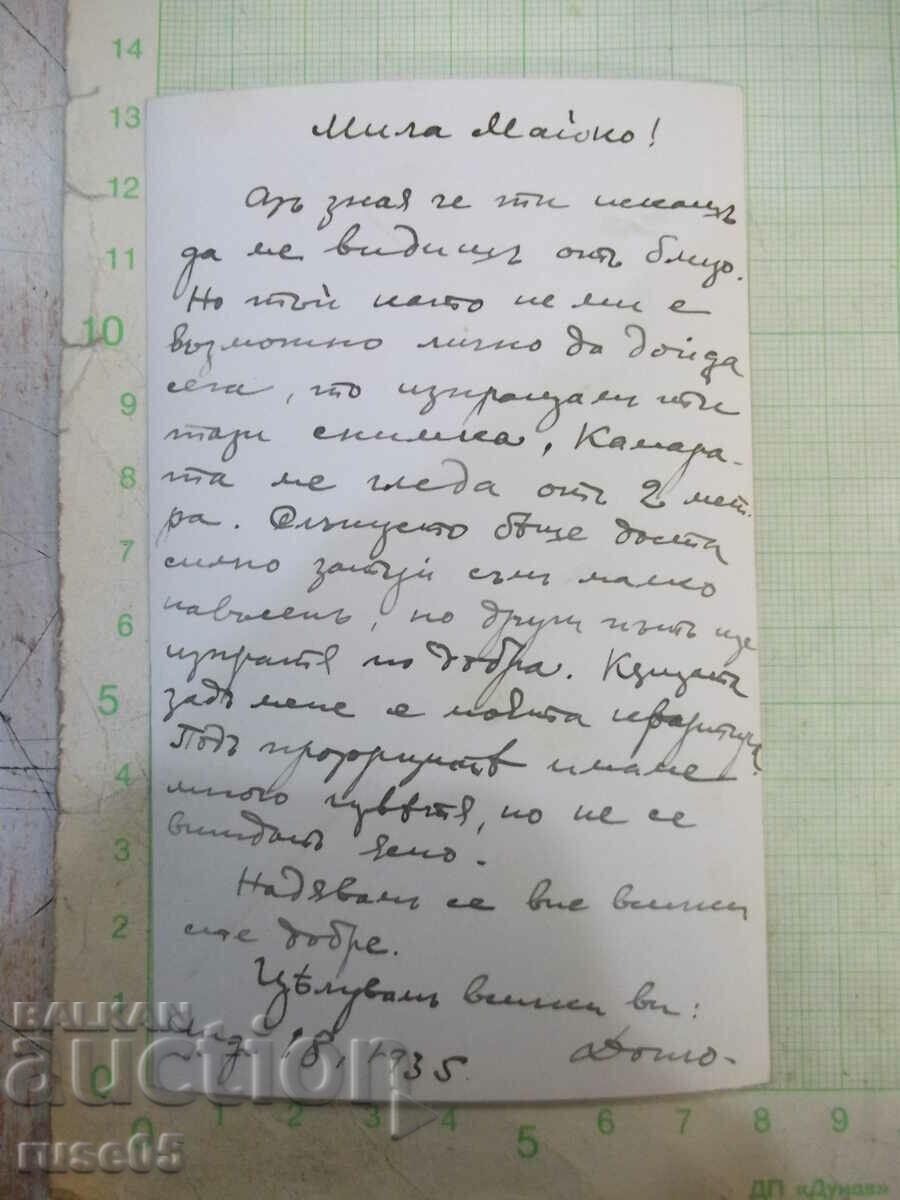 Мила Майко!
Азъ зная че ти искашъ
да ме видишъ отъ близо.
Но тъй като не ми е
възможно лично да дойда
сега, то изпращамъ ти
тази снимка, Камара-
та ме гледа отъ 2 мет-
ра. Слънцето бѣше доста
силно затуй съмъ малко
навъсенъ, но други пътъ ще
изпратя по добра. Кѫщата
задъ мене е моята квартира.
Подъ имаме
много цвѣтя, но не се
виждатъ ясно.
Надявамъ се вие всички
сте добре.
Цѣлувамъ всички ви:
18, 1935
14
13
12
11
10
9
8
7
6
5
4
3
2
1
0
0
1
2
3
4
5
6
7
8
9
ДП «Дунав»
BALKAN
auction
ruse05